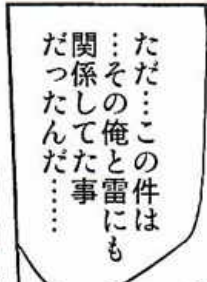 ただ…この件は
…その俺と雷にも
関係してた事
だったんだ……